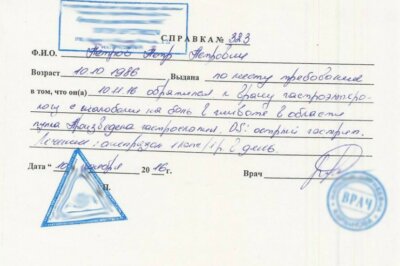 СПРАВКА № 323
Ф.И.О. Петров Петр Петрович
Возраст 10.10 1986 Выдана по месту требования
в том, что он(а) 10.11.16 обратился к врачу гастроэнтеро-
логу с жалобами на боль в животе в области
пупа. Произведена гастроскопия. DS: острый гастрит.
Лечение: 1 день.
Дата " 10 " ноября 2016 г. Врач
М.П.
ВРАЧ